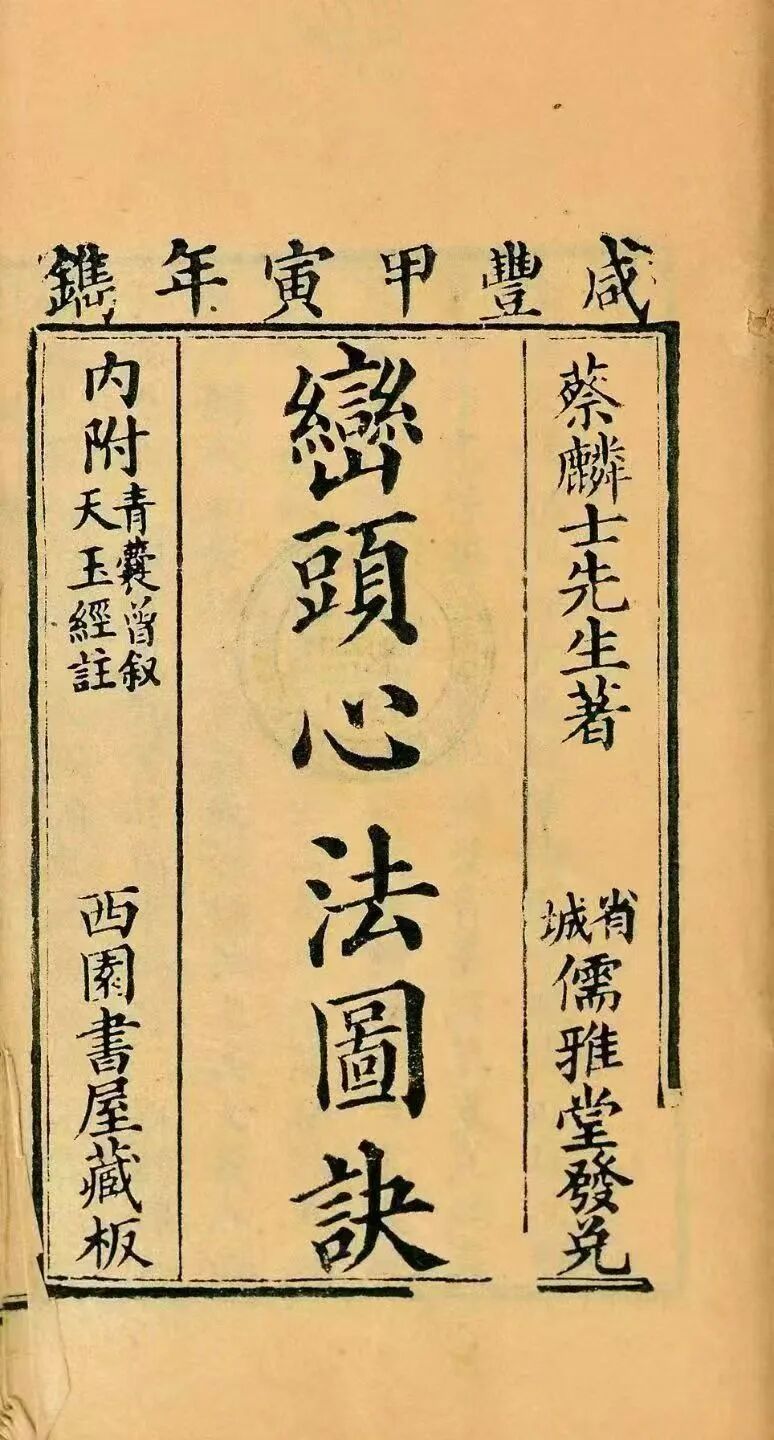 咸豐甲寅年鐫
蔡麟士先生著
省城儒雅堂發兌
巒頭心法圖訣
內附青囊曾叙天玉經註
西園書屋藏板